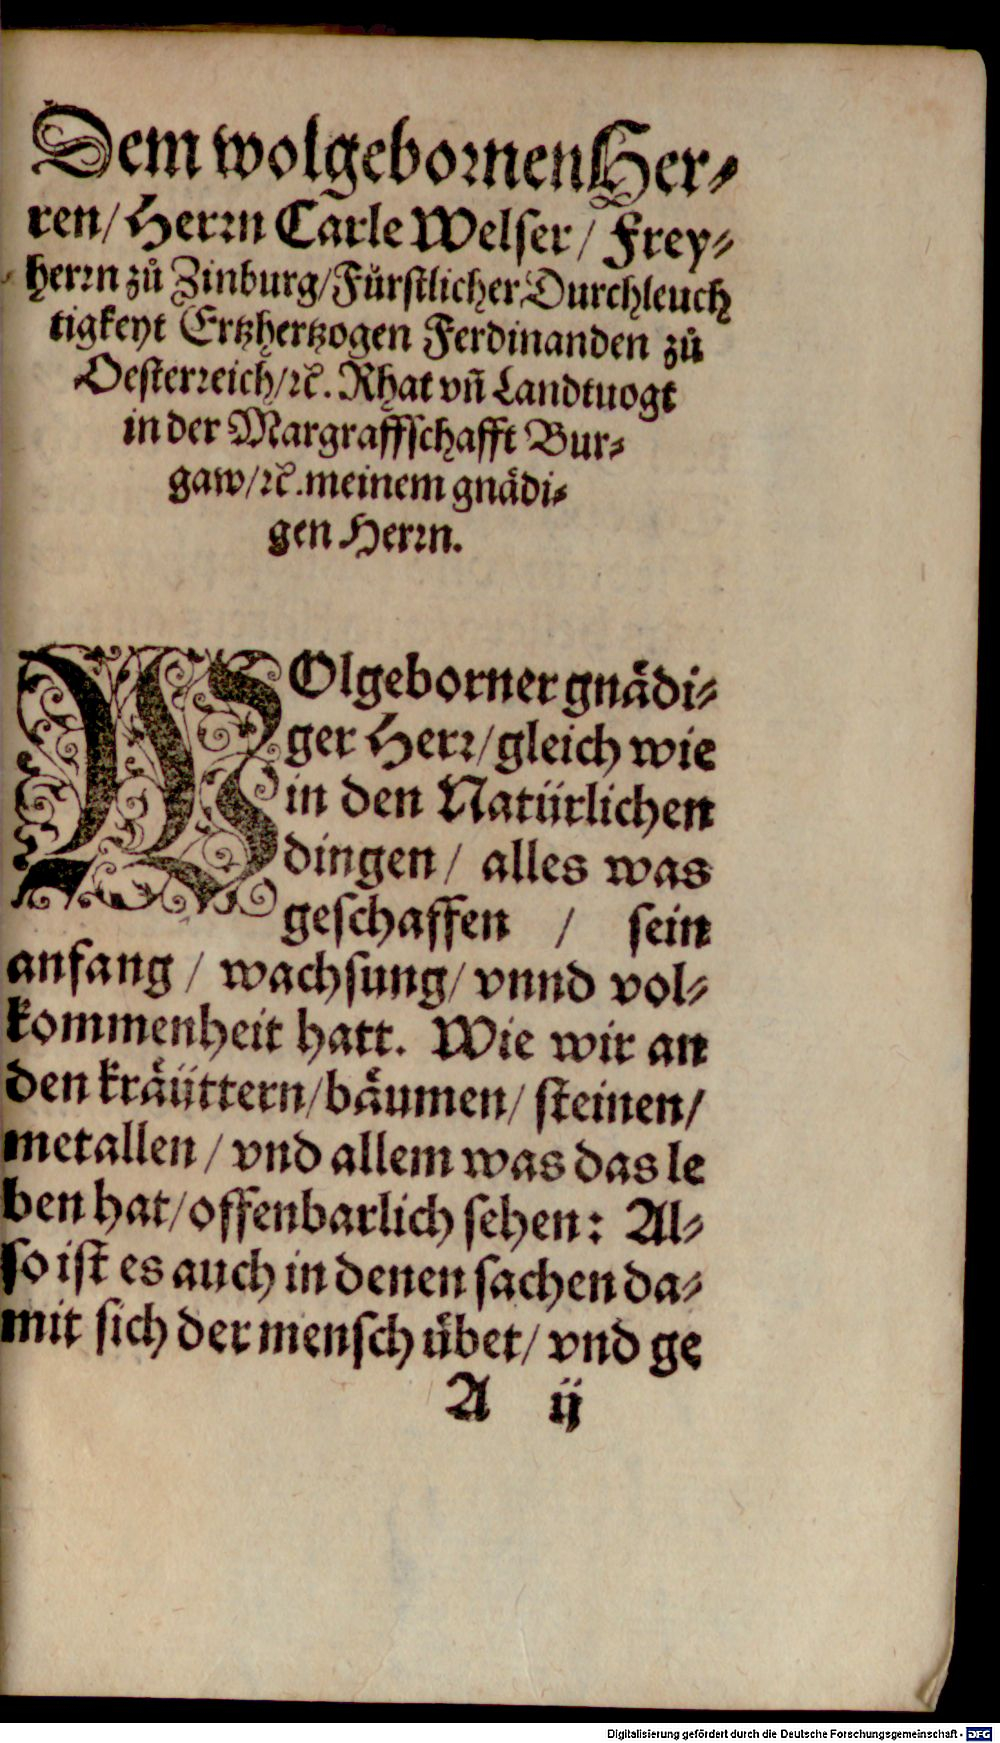 Dem wolgebornen Her⸗
ren/ Herrn Carle Welser/ Frey⸗
herrn zů Zinburg/ Fürstlicher Durchleuch
tigkeyt Ertzhertzogen Ferdinanden zů
Oesterreich/ ꝛc. Rhat vñ Landtuogt
in der Margraffschafft Bur⸗
gaw/ ꝛc. meinem gnädi⸗
gen Herrn.
WOlgeborner gnädi⸗
ger Herr/ gleich wie
in den Natürlichen
dingen/ alles was
geschaffen / sein
anfang / wachsung/ vnnd vol⸗
kommenheit hatt. Wie wir an
den kräüttern/ bäumen/ steinen/
metallen / vnd allem was das le
ben hat/ offenbarlich sehen: Al⸗
so ist es auch in denen sachen da⸗
mit sich der mensch übet/ vnd ge
A ij
Digitalisierung gefördert durch die Deutsche Forschungsgemeinschaft - DFG